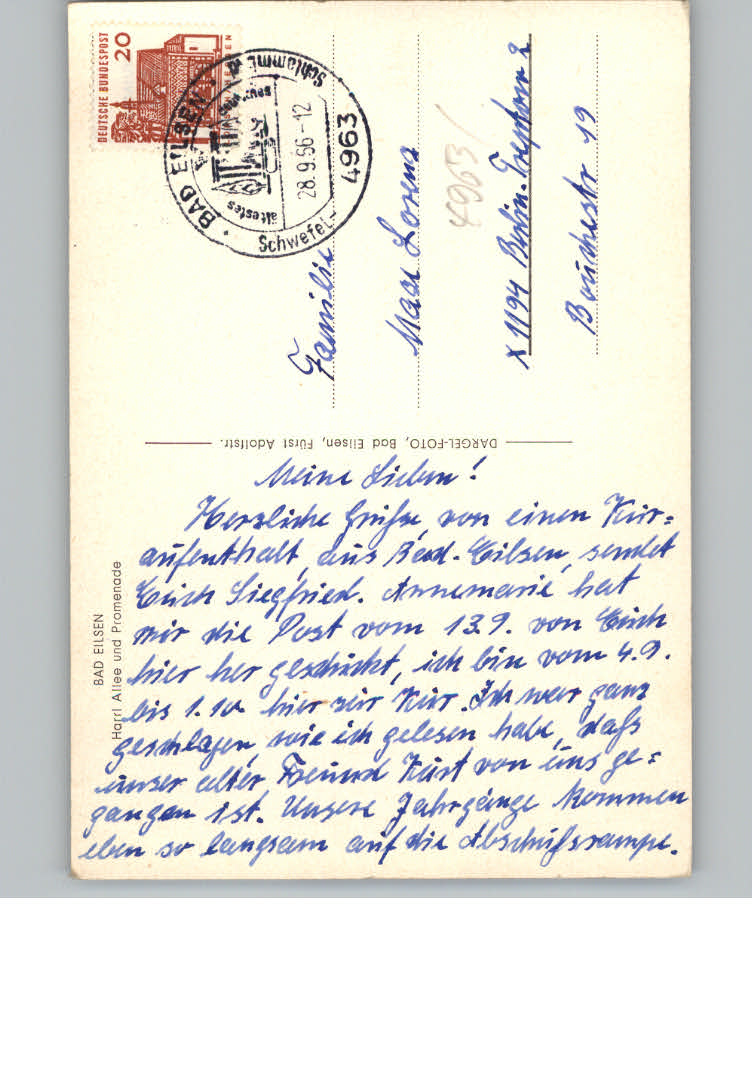 DEUTSCHE BUNDESPOST
20
BAD EILSEN
ältestes
Schwefel-
Schlamm
28.9.66-12
4963
4963
Familie
Max Lorenz
X 1194 Berlin-Treptow 2
Bouchestr 19
DARGEL-FOTO, Bad Eilsen, Fürst Adolfstr.
BAD EILSEN
Harrl Allee und Promenade
Meine Lieben!
Herzliche Grüße, von einen Kur=
aufenthalt, aus Bad-Eilsen, sendet
Euch Siegfried. Annemarie hat
mir die Post vom 13.9. von Euch
hier her geschickt, ich bin vom 4.9.
bis 1.10. hier zur Kur. Ich war ganz
geschlagen, wie ich gelesen habe, daß
unser alter Freund Kurt von uns ge=
gangen ist. Unsere Jahrgänge kommen
eben so langsam auf die Abschußrampe.